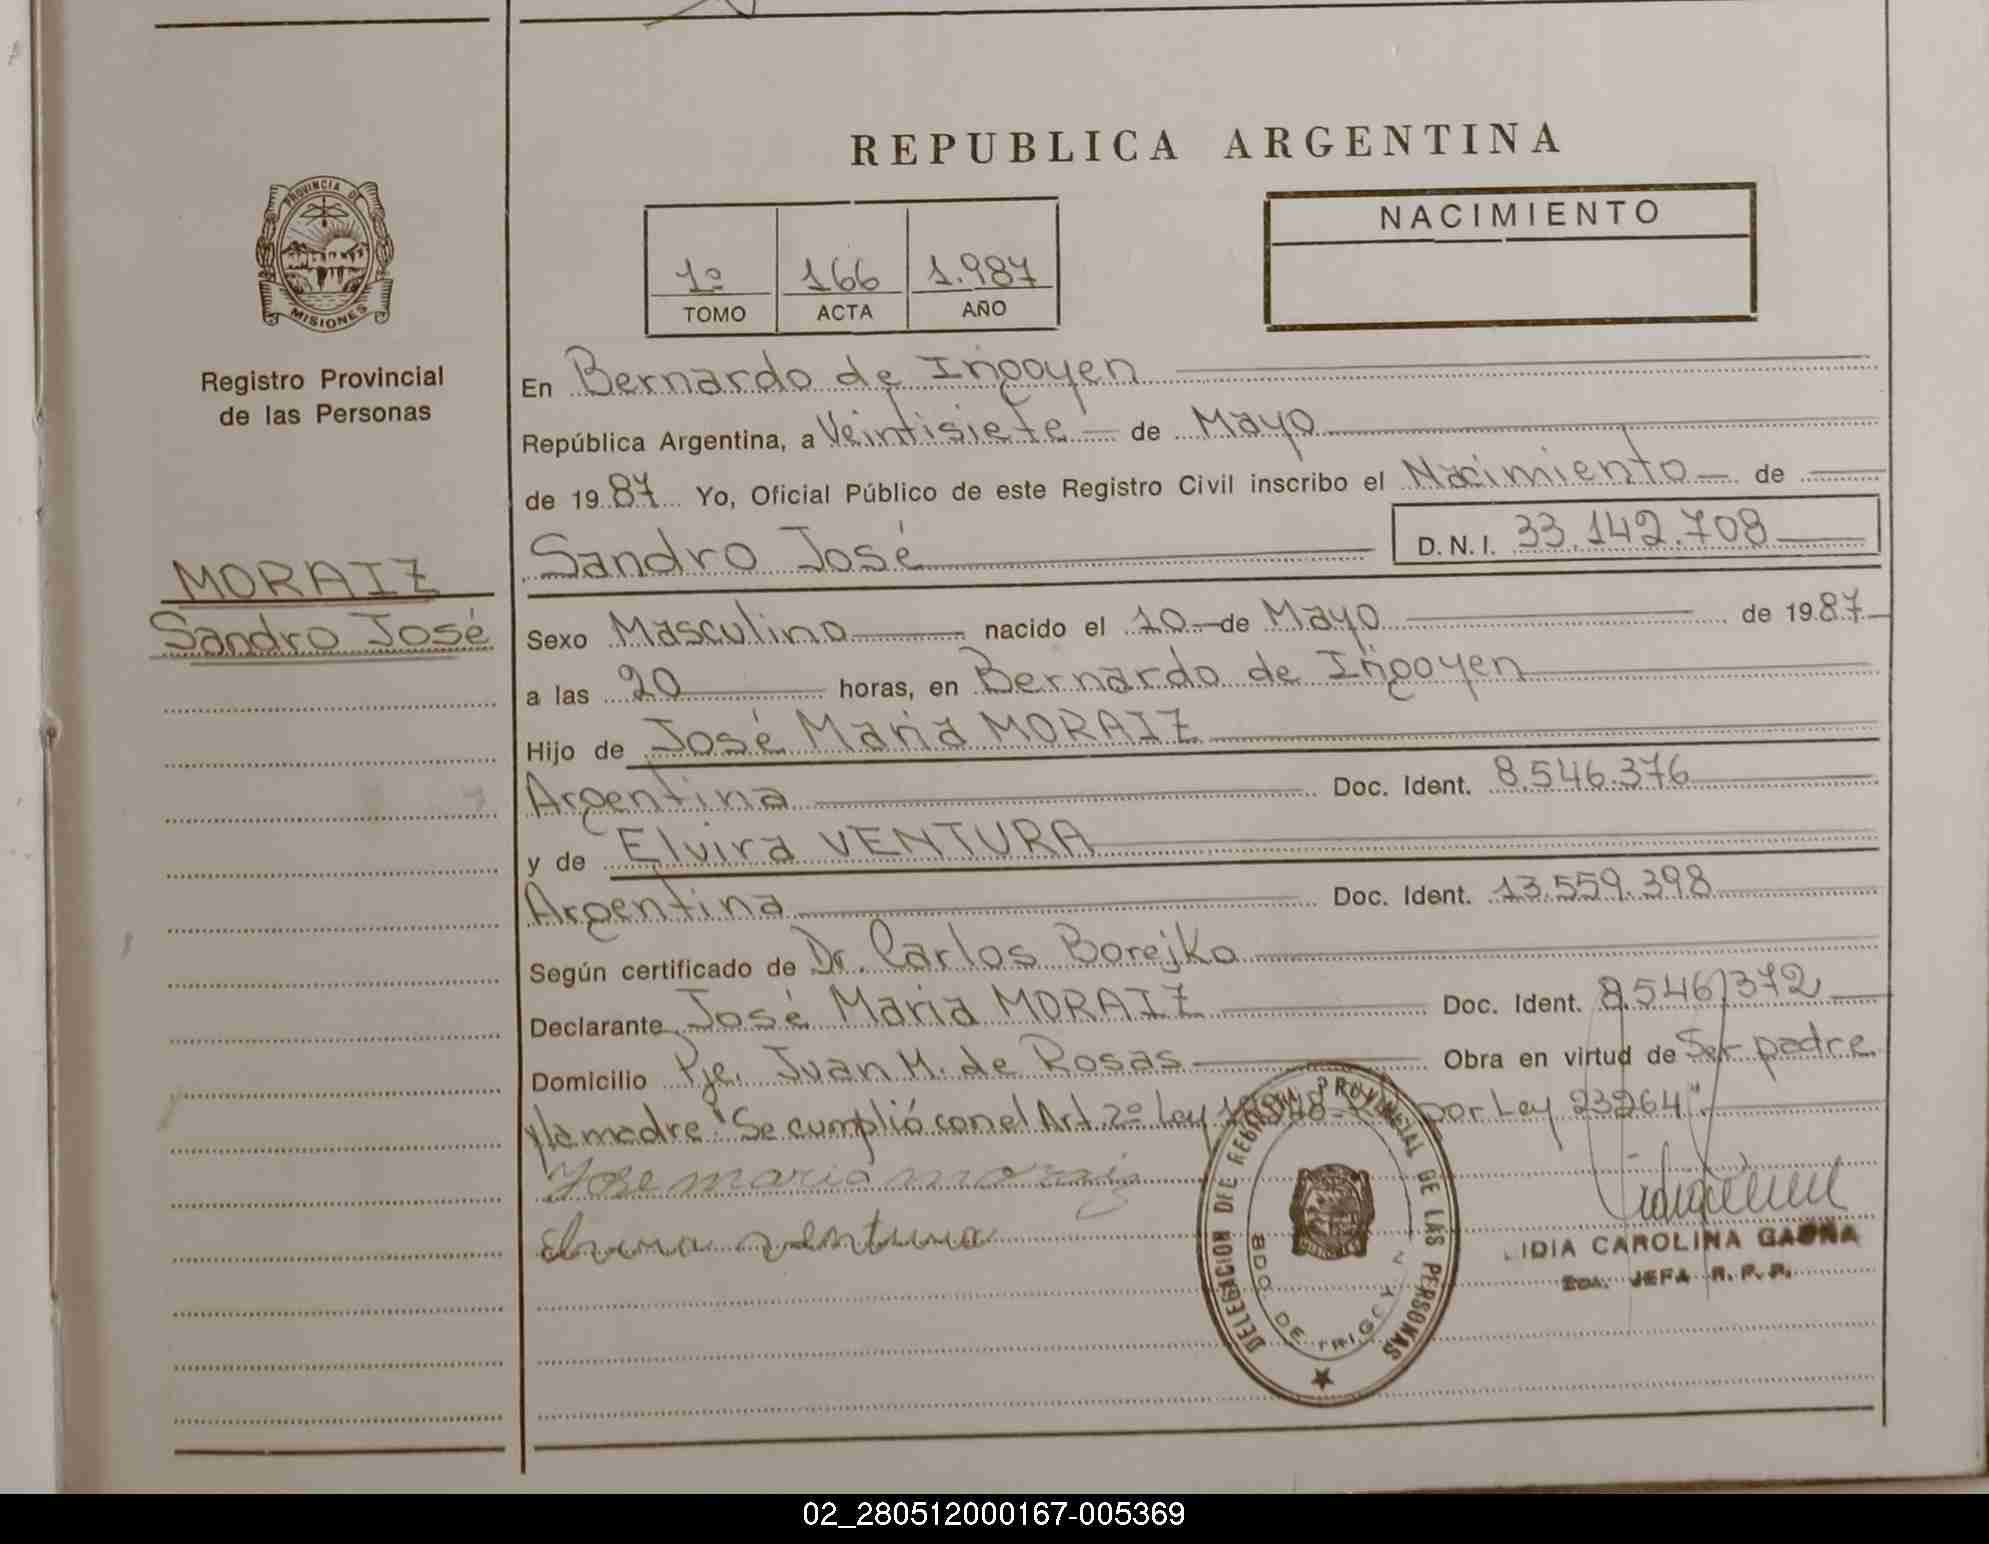 REPUBLICA ARGENTINA
PROVINCIA DE
MISIONES
Registro Provincial
de las Personas
MORAIZ
Sandro José
1º 166 1.987
TOMO ACTA AÑO
NACIMIENTO
En Bernardo de Irigoyen
República Argentina, a Veintisiete de Mayo
de 1987 Yo, Oficial Público de este Registro Civil inscribo el Nacimiento de
Sandro José D.N.I. 33.142.708
Sexo Masculino nacido el 10 de Mayo de 1987
a las 20 horas, en Bernardo de Irigoyen
Hijo de José Maria MORAIZ
Argentina Doc. Ident. 8.546.376
y de Elvira VENTURA
Argentina Doc. Ident. 13.559.398
Según certificado de Dr. Carlos Borejko
Declarante José Maria MORAIZ Doc. Ident. 8.546.372
Domicilio Pje. Juan M. de Rosas Obra en virtud de Ser padre
y la madre. "Se cumplió con el Art. 2º Ley por Ley 23264".
Jose maria moraiz
elvira ventura
DELEGACION DEL REGISTRO PROVINCIAL DE LAS PERSONAS
BDO. DE IRIGOYEN
LIDIA CAROLINA
JEFA R.P.P.
02_280512000167-005369